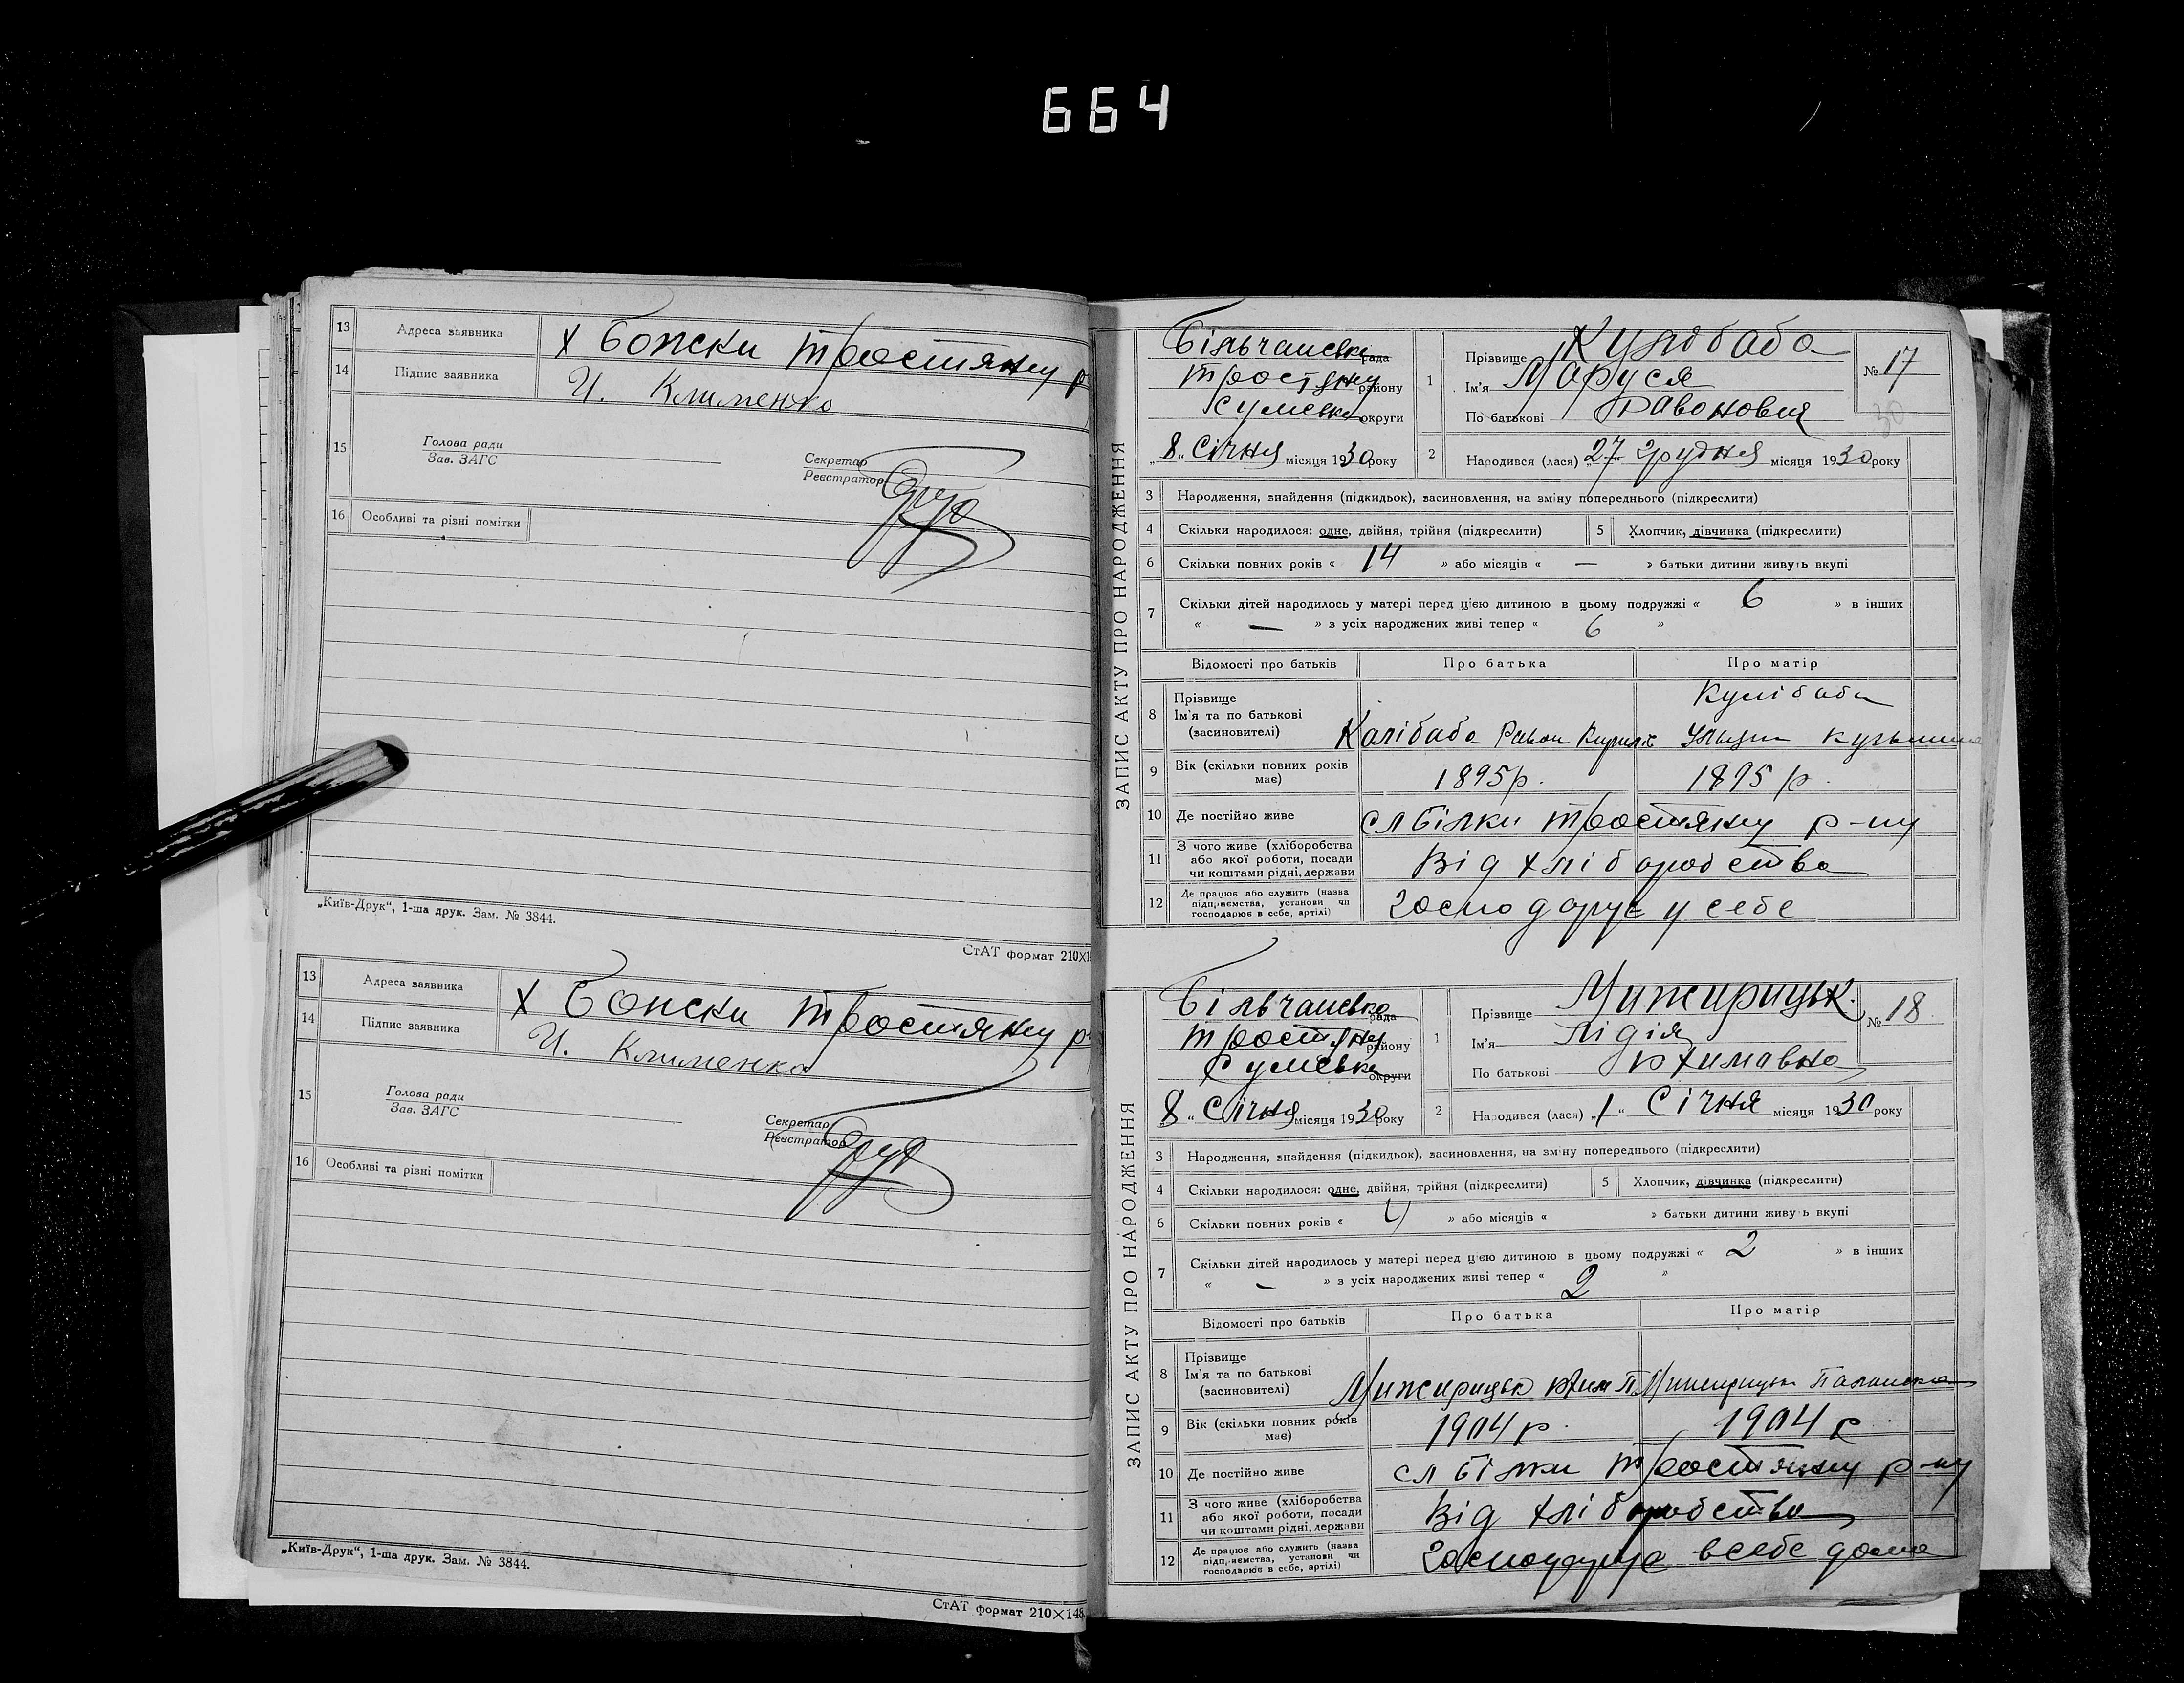 664
13 Адреса заявника х Бонски Тростянц р
14 Підпис заявника И. Клименко
15 Голова ради
Зав. ЗАГС
Секретар
Реєстратор
16 Особливі та різні помітки
„Київ-Друк“, 1-ша друк. Зам. № 3844.
СтАТ формат 210×1
13 Адреса заявника х Бонски Тростянц р
14 Підпис заявника И. Клименко
15 Голова ради
Зав. ЗАГС
Секретар
Реєстратор
16 Особливі та різні помітки
„Київ-Друк“, 1-ша друк. Зам. № 3844.
СтАТ формат 210×148
ЗАПИС АКТУ ПРО НАРОДЖЕННЯ
Більчанська рада
Тростянц району
Сумська округи
„8“ Січня місяця 1930 року
1 Прізвище Кулібаба
Ім'я Маруся
По батькові Равоновня
№ 17
30
2 Народився (лася) „27“ Грудня місяця 1930 року
3 Народження, знайдення (підкидьок), засиновлення, на зміну попереднього (підкреслити)
4 Скільки народилося: одне, двійня, трійня (підкреслити) 5 Хлопчик, дівчинка (підкреслити)
6 Скільки повних років « 14 » або місяців « — » батьки дитини живуть вкупі
7 Скільки дітей народилось у матері перед цією дитиною в цьому подружжі « 6 » в інших
« — » з усіх народжених живі тепер « 6 »
Відомості про батьків Про батька Про матір
8 Прізвище
Ім'я та по батькові
(засиновителі)
Калібаба Равон Кирил
Кулібаба
Кузьмина
9 Вік (скільки повних років має) 1895р. 1895 р.
10 Де постійно живе сл Білки Тростянцу р-ну
11 З чого живе (хліборобства
або якої роботи, посади
чи коштами рідні, держави
Від хліборобства
12 Де працює або служить (назва
підприємства, установи чи
господарює в себе, артілі)
Господарує у себе
ЗАПИС АКТУ ПРО НАРОДЖЕННЯ
Більчанська рада
Тростянц району
Сумська округи
8 “ Січня місяця 1930 року
1 Прізвище Мижирицьк.
Ім'я Лідія
По батькові Юхимавна
№ 18
2 Народився (лася) „1“ Січня місяця 1930 року
3 Народження, знайдення (підкидьок), засиновлення, на зміну попереднього (підкреслити)
4 Скільки народилося: одне, двійня, трійня (підкреслити) 5 Хлопчик, дівчинка (підкреслити)
6 Скільки повних років « 4 » або місяців « » батьки дитини живуть вкупі
7 Скільки дітей народилось у матері перед цією дитиною в цьому подружжі « 2 » в інших
« — » з усіх народжених живі тепер « 2 »
Відомості про батьків Про батька Про матір
8 Прізвище
Ім'я та по батькові
(засиновителі)
Мижирицьк Юхим П. Мижирицьк
9 Вік (скільки повних років має) 1904 р. 1904 р
10 Де постійно живе сл Білки Тростянцу р-ну
11 З чого живе (хліборобства
або якої роботи, посади
чи коштами рідні, держави
Від хліборобства
12 Де працює або служить (назва
підприємства, установи чи
господарює в себе, артілі)
Господарує всебе дома